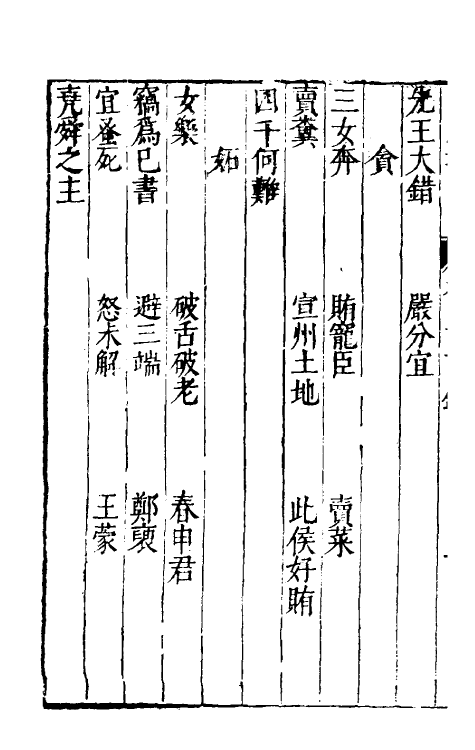 先王大錯　嚴分宜
貪
三女奔　賄寵臣　賣菜
賣糞　宣州土地　此侯好賄
四千何難
妬
女褩　破舌破老　春申君
竊爲已書　避三端　鄭褏
宜蚤死　怒未解　王蒙
堯舜之主